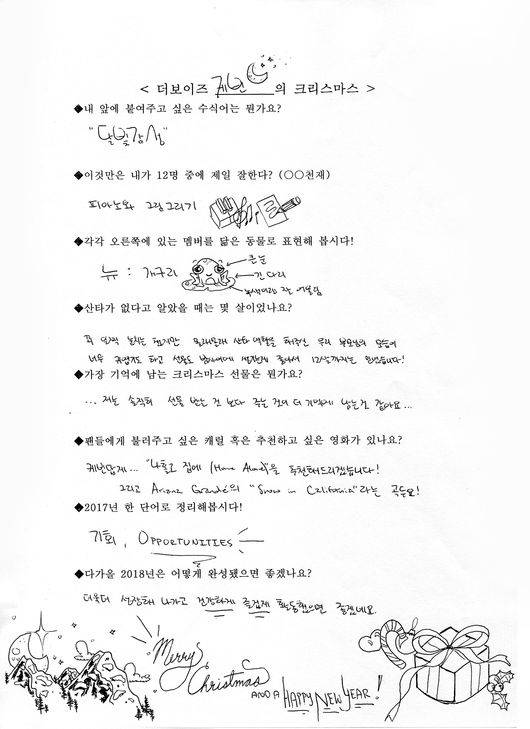 < 더보이즈 케빈의 크리스마스 >
◆내 앞에 붙여주고 싶은 수식어는 뭔가요?
"달빛감성"
◆이것만은 내가 12명 중에 제일 잘한다? (○○천재)
피아노와 그림그리기
◆각각 오른쪽에 있는 멤버를 닮은 동물로 표현해 봅시다!
뉴 : 개구리
큰눈
긴 다리
녹색이랑 잘 어울림
◆산타가 없다고 알았을 때는 몇 살이었나요?
산타 해주신 우리 부모님의 모습이
너무 귀엽기도 하고 선물도 12살까지는
◆가장 기억에 남는 크리스마스 선물은 뭔가요?
... 저는 솔직히 선물 받는 것 보다 주는 것이 더 기억에 남는 것 같아요...
◆팬들에게 불러주고 싶은 캐럴 혹은 추천하고 싶은 영화가 있나요?
케빈답게... "나홀로 집에 (Home Alone)"을 추천해드리겠습니다!
그리고 Ariana Grande의 "Snow in California"라는 곡두요!
◆2017년 한 단어로 정리해봅시다!
기회, OPPORTUNITIES
◆다가올 2018년은 어떻게 완성됐으면 좋겠나요?
더욱더 성장해 나가고 건강하게 즐겁게 활동했으면 좋겠네요.
Merry
Christmas
AND A HAPPY NEW YEAR!